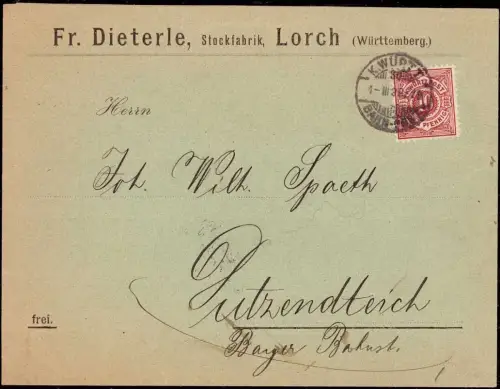 Fr. Dieterle, Stockfabrik, Lorch (Württemberg.)
K.WÜRTT.
Herrn
PFENNIG
Joh. Wilh. Spaeth
Dutzendteich
frei.
Bayer Bahnst.